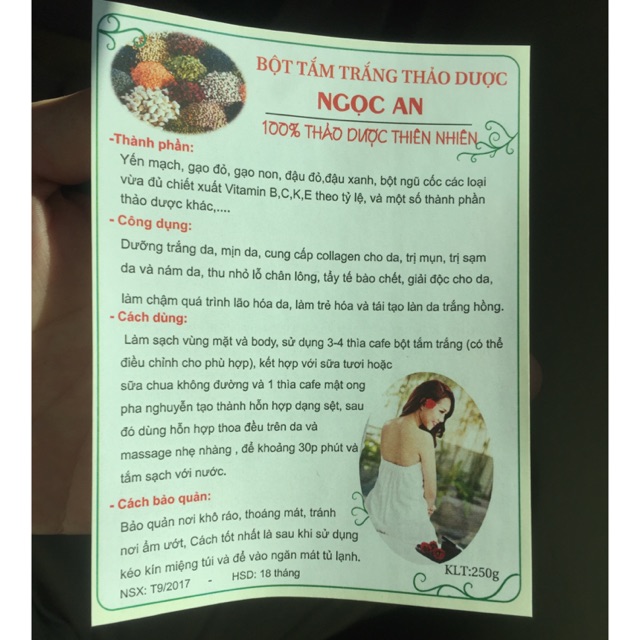 BỘT TẮM TRẮNG THẢO DƯỢC
NGỌC AN
100% THẢO DƯỢC THIÊN NHIÊN
-Thành phần:
Yến mạch, gạo đỏ, gạo non, đậu đỏ,đậu xanh, bột ngũ cốc các loại
vừa đủ chiết xuất Vitamin B,C,K,E theo tỷ lệ, và một số thành phần
thảo dược khác,....
- Công dụng:
Dưỡng trắng da, mịn da, cung cấp collagen cho da, trị mụn, trị sạm
da và nám da, thu nhỏ lỗ chân lông, tẩy tế bào chết, giải độc cho da,
làm chậm quá trình lão hóa da, làm trẻ hóa và tái tạo làn da trắng hồng.
- Cách dùng:
Làm sạch vùng mặt và body, sử dụng 3-4 thìa cafe bột tắm trắng (có thể
điều chỉnh cho phù hợp), kết hợp với sữa tươi hoặc
sữa chua không đường và 1 thìa cafe mật ong
pha nghuyễn tạo thành hỗn hợp dạng sệt, sau
đó dùng hỗn hợp thoa đều trên da và
massage nhẹ nhàng , để khoảng 30p phút và
tắm sạch với nước.
- Cách bảo quản:
Bảo quản nơi khô ráo, thoáng mát, tránh
nơi ẩm ướt, Cách tốt nhất là sau khi sử dụng
kéo kín miệng túi và để vào ngăn mát tủ lạnh.
NSX: T9/2017 - HSD: 18 tháng
KLT:250g